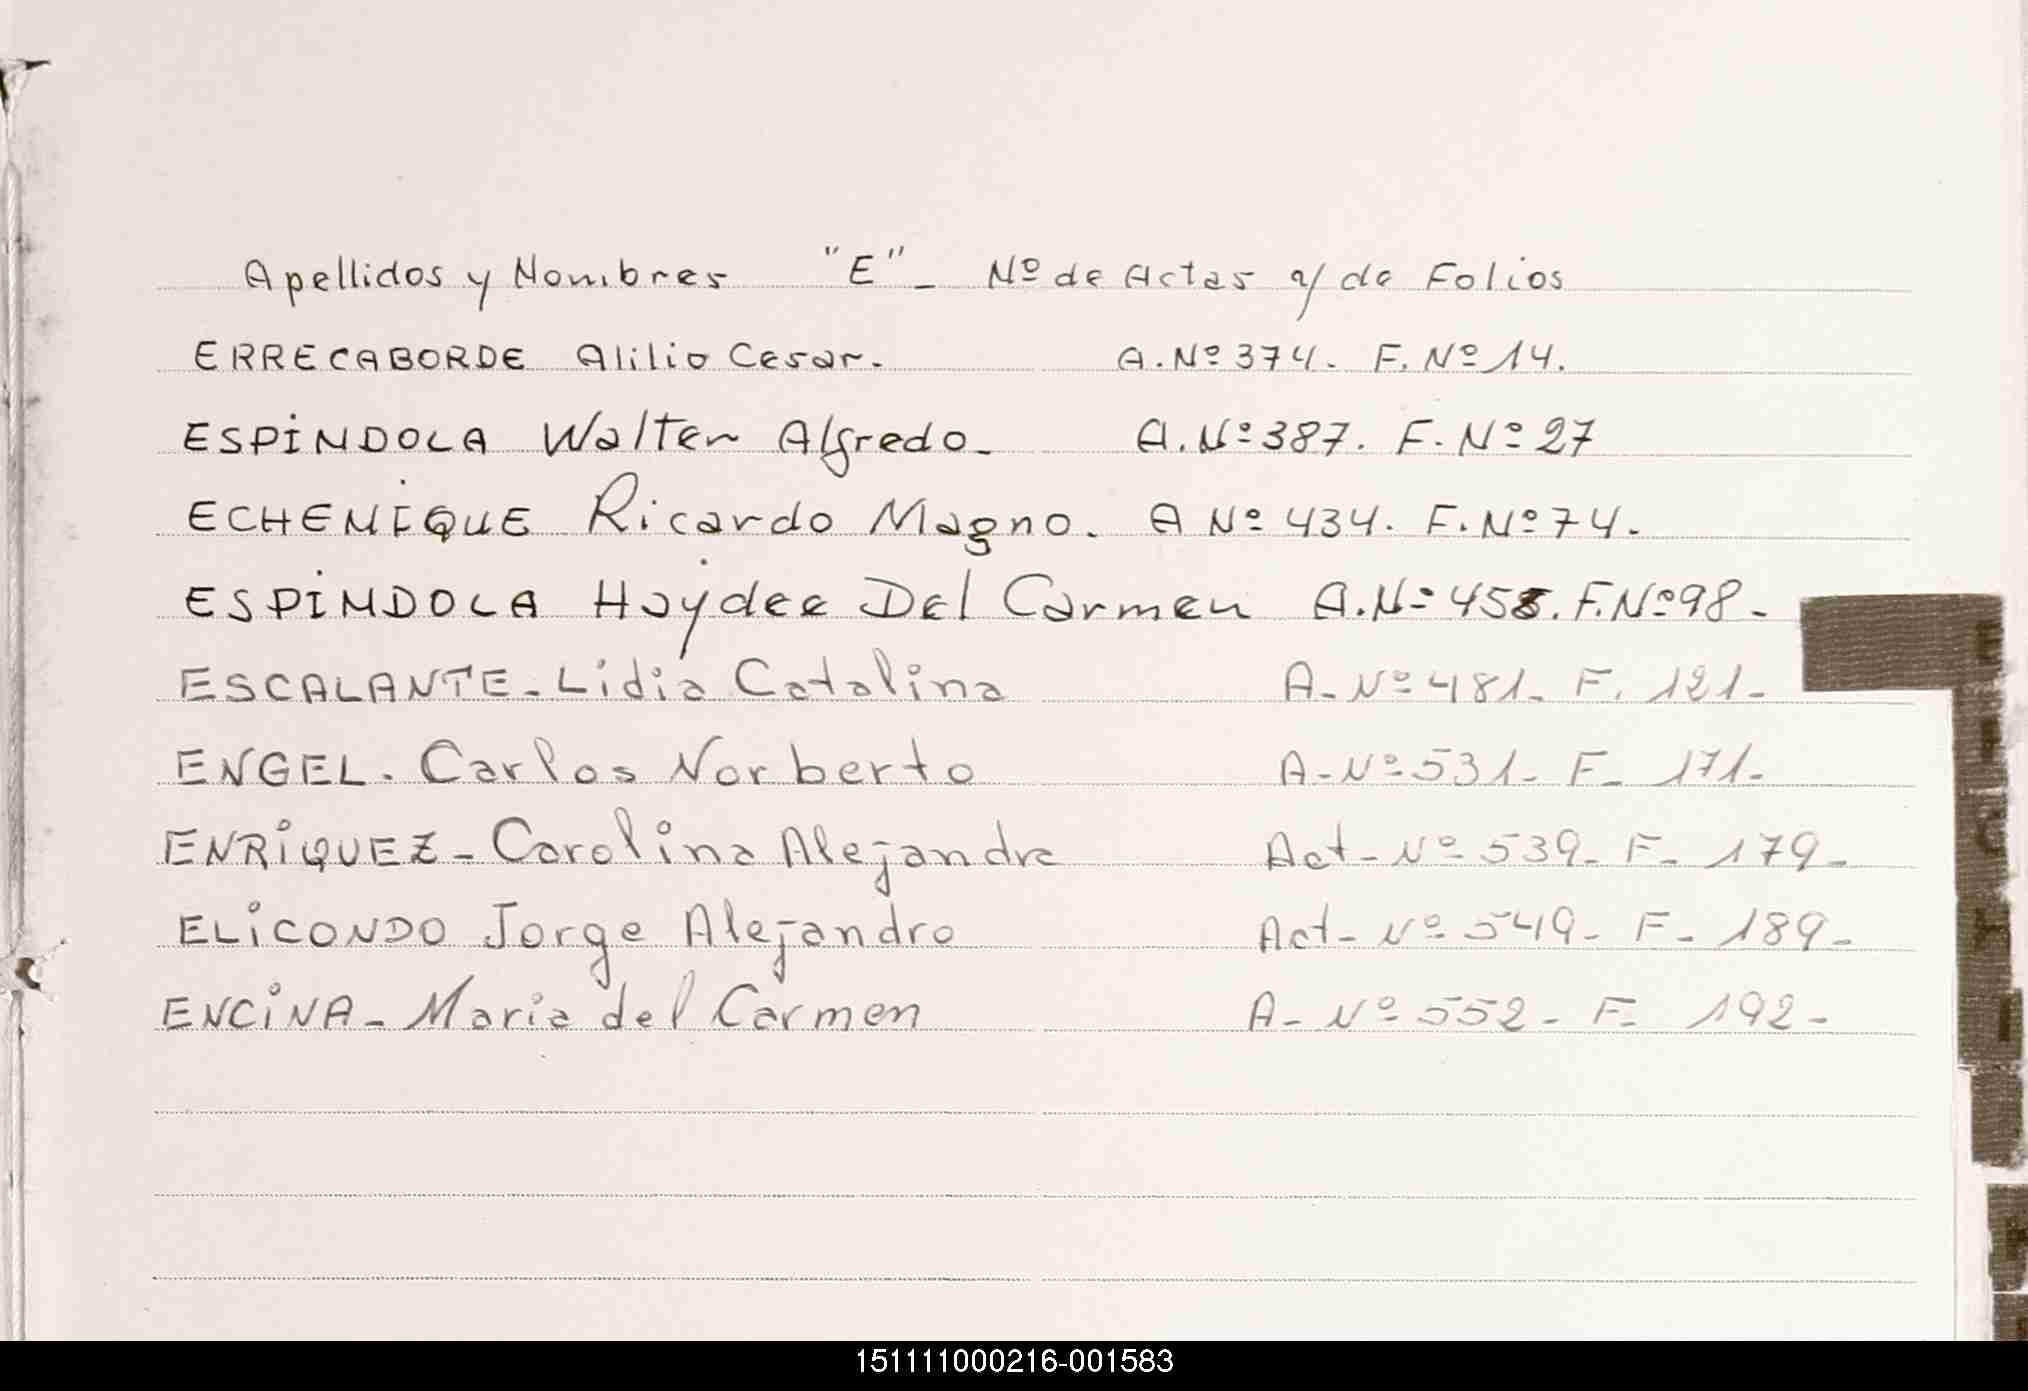 Apellidos y Nombres "E"_ Nº de Actas y/ de Folios
ERRECABORDE Alilio Cesar. A.Nº374. F.Nº14.
ESPINDOLA Walter Alfredo_ A.Nº387. F.Nº27
ECHENIQUE Ricardo Magno. A Nº434. F.Nº74.
ESPINDOLA Haydee Del Carmen A.Nº458. F.Nº98-
ESCALANTE-Lidia Catalina A-Nº481- F. 121-
ENGEL. Carlos Norberto A-Nº531- F- 171-
ENRIQUEZ-Carolina Alejandra Act-Nº539- F- 179-
ELICONDO Jorge Alejandro Act-Nº549- F- 189-
ENCINA-Maria del Carmen A-Nº552- F- 192-
151111000216-001583